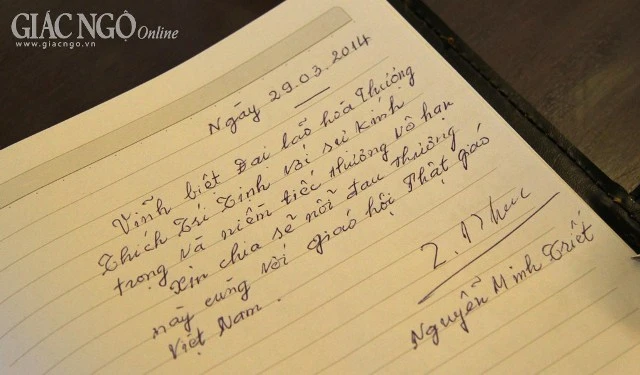 GIÁC NGỘ Online
www.giacngo.vn
Ngày 29.03.2014
Vĩnh biệt Đại lão hòa Thượng
Thích Trí Tịnh với sự kính
trọng và niềm tiếc thương vô hạn
Xin chia sẽ nỗi đau thương
này cùng với giáo hội Phật giáo
Việt Nam.
Nguyễn Minh Triết